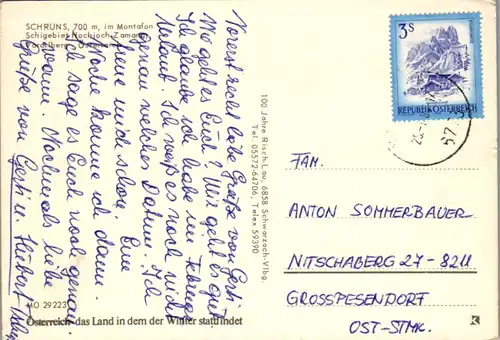 SCHRUNS, 700 m, im Montafon
Schigebiet Hochjoch-Zamang
Vorarlberg - Österreich
Vorerst recht liebe Grüße von Gerti
Wie geht es Euch? Wir geht es gut
Ich glaube ich habe im Februar
Urlaub. Ich weiß es noch nicht
genau welches Datum. Ich
freue mich schon. Eine
Woche komme ich dann.
Ich sage es Euch noch genau
wann. Nochmals liebe
Grüße von Gerti u. Hubert
MO 29223
Österreich - das Land in dem der Winter stattfindet
100 Jahre Risch-Lau, 6858 Schwarzach-Vlbg.
Tel. 05572-64706, Telex 59390
3 S
REPUBLIK ÖSTERREICH
FAM.
ANTON SOMMERBAUER
NITSCHABERG 27 - 8211
GROSSPESENDORF
OST-STMK.